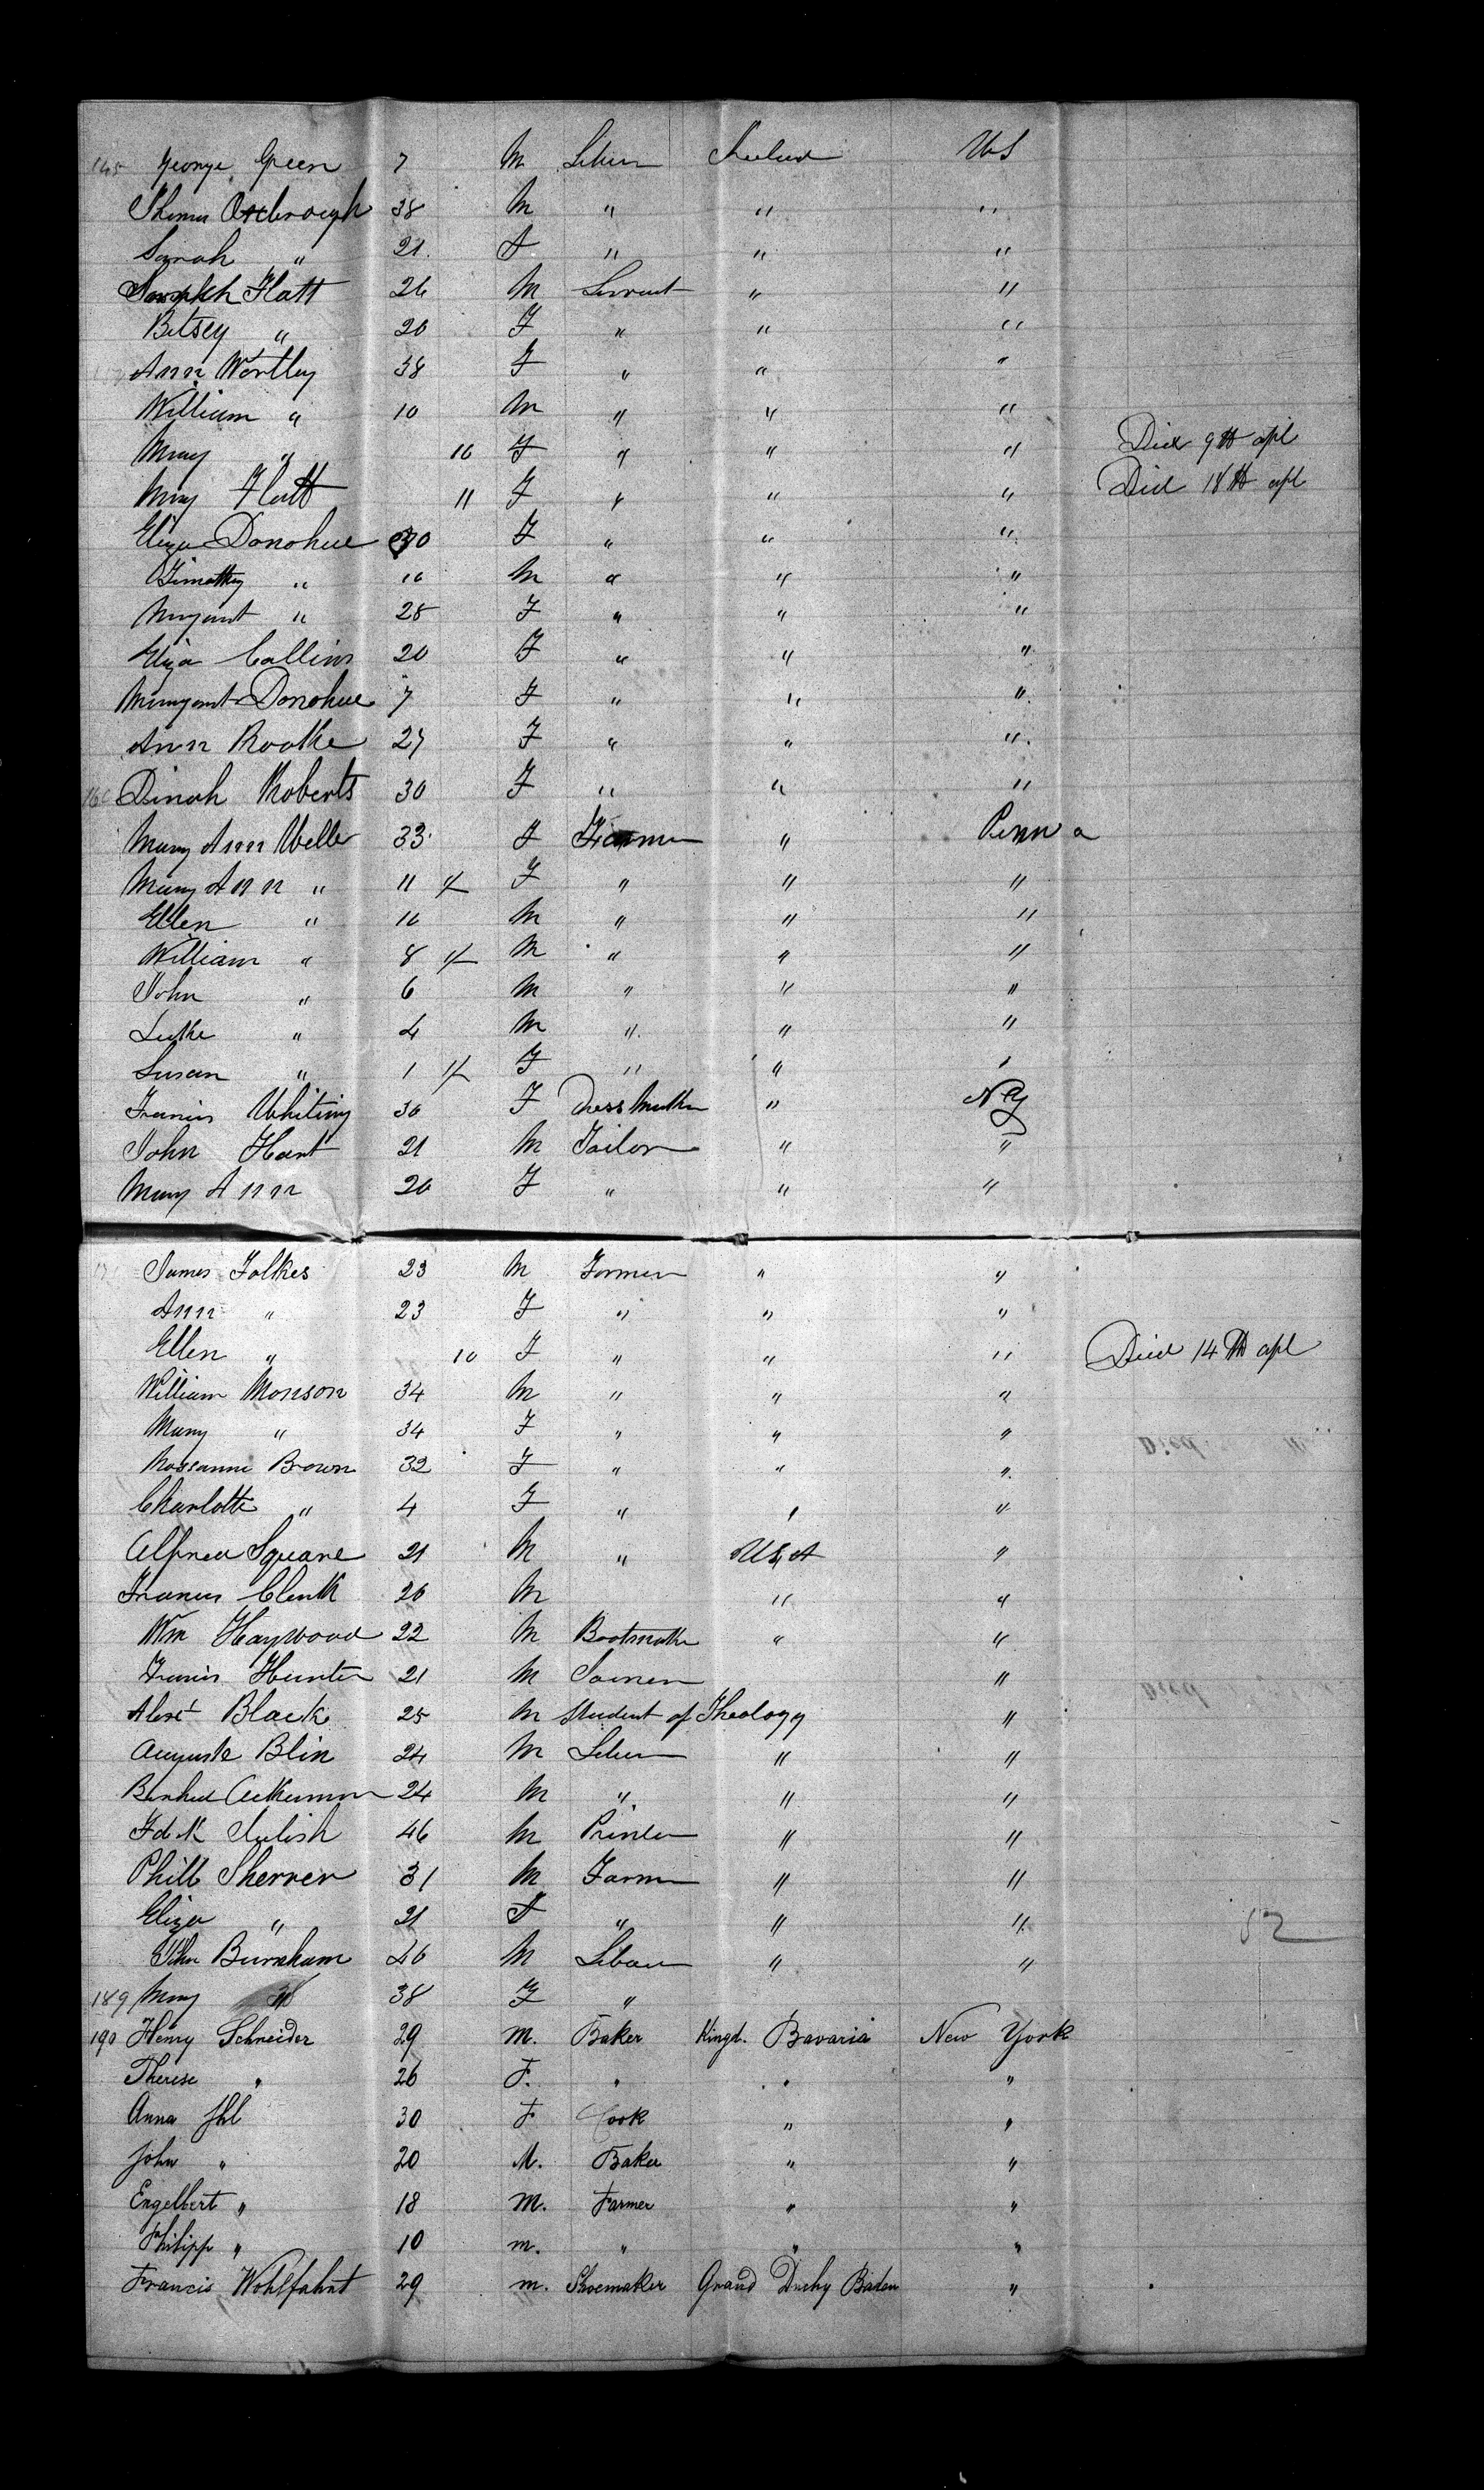 145 George Green 7 M Ireland U S
Thomas 38 M " " "
Sarah " 21. F " " "
Flatt 26 M Servant " "
Betsey " 20 F " " "
Ann Wortley 38 F " " "
William " 10 M " " "
Mary " 10 F " " " Died 9th apl
Mary Flatt 11 F " " " Died 18th apl
Eliza Donohue 30 F " " "
Timothy " 10 M " " "
Margaret " 25 F " " "
Eliza Collins 20 F " " "
Margaret Donohue 7 F " " "
Ann 27 F " " "
160 Dinah Roberts 30 F " " "
Mary Ann 33 F Farmer " Penn a
Mary Ann " 11 F " " "
Ellen " 10 M " " "
William " 8 M " " "
John " 6 M " " "
Luke " 4 M " " "
Susan " 1 F " " "
Francis Whiting 30 F Dress Maker " N Y
John Hart 21 M Tailor " "
Mary Ann 20 F " " "
James Folkes 23 M Farmer " "
Ann " 23 F " " "
Ellen " 10 F " " " Died 14th apl
William Monson 34 M " " "
Mary " 34 F " " "
Rossanna Brown 32 F " " "
Charlotte " 4 F " " "
Alfred Square 21 M " U S A "
Francis Clark 20 M " "
Wm Haywood 22 M Bootmaker " "
Francis Hunter 21 M "
Alexr Black 25 M Student of Theology "
Auguste Blin 24 M " "
Ackerman 24 M " " "
46 M Printer " "
Phill Sherrer 31 M Farmer " "
Eliza " 21 F " " "
John Burnham 40 M " "
189 Mary " 38 F "
190 Henry Schneider 29 M. Baker Kingd. Bavaria New York
Therese " 26 F. " " "
Anna Ihl 30 F Cook " "
John " 20 M. Baker " "
Engelbert " 18 M. Farmer " "
Philipp " 10 m. " " "
Francis Wohlfahrt 29 m. Shoemaker Grand Duchy Baden "